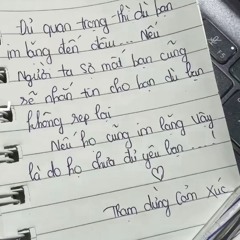 Đủ quan trọng thì dù bạn
im lặng đến đâu... Nếu
Người ta sợ mất bạn cũng
sẽ nhắn tin cho bạn dù bạn
không rep lại
Nếu họ cũng im lặng vậy
là do họ chưa đủ yêu bạn....!
Trạm dừng Cảm Xúc